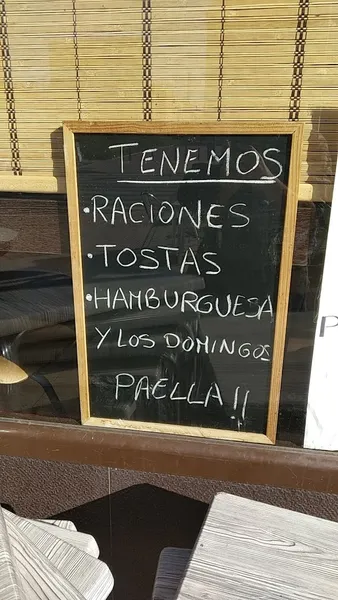 TENEMOS
•RACIONES
•TOSTAS
•HAMBURGUESA
Y LOS DOMINGOS
PAELLA!!
P